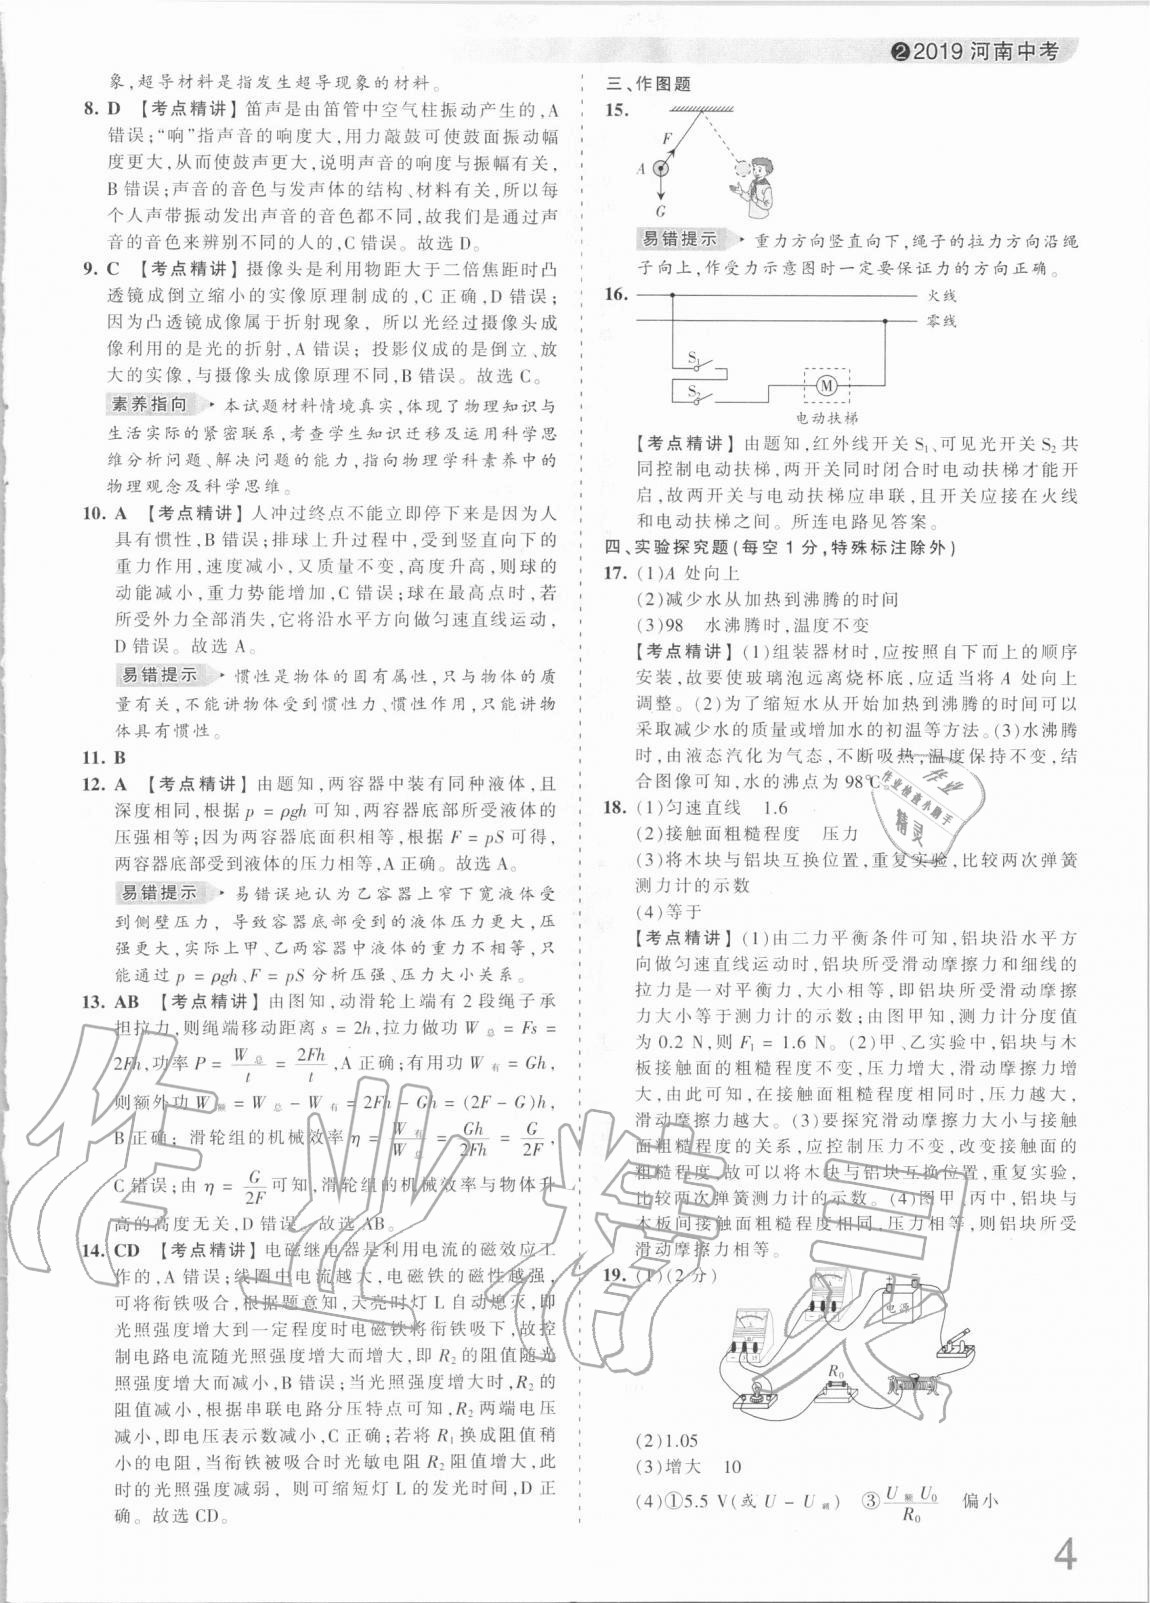 ❷2019 河南中考
象,超导材料是指发生超导现象的材料。
8. D 【考点精讲】笛声是由笛管中空气柱振动产生的,A
错误;“响”指声音的响度大,用力敲鼓可使鼓面振动幅
度更大,从而使鼓声更大,说明声音的响度与振幅有关,
B错误;声音的音色与发声体的结构、材料有关,所以每
个人声带振动发出声音的音色都不同,故我们是通过声
音的音色来辨别不同的人的,C错误。故选D。
9. C 【考点精讲】摄像头是利用物距大于二倍焦距时凸
透镜成倒立缩小的实像原理制成的,C正确,D错误;
因为凸透镜成像属于折射现象,所以光经过摄像头成
像利用的是光的折射,A错误;投影仪成的是倒立、放
大的实像,与摄像头成像原理不同,B错误。故选C。
素养指向 本试题材料情境真实,体现了物理知识与
生活实际的紧密联系,考查学生知识迁移及运用科学思
维分析问题、解决问题的能力,指向物理学科素养中的
物理观念及科学思维。
10. A 【考点精讲】人冲过终点不能立即停下来是因为人
具有惯性,B错误;排球上升过程中,受到竖直向下的
重力作用,速度减小,又质量不变,高度升高,则球的
动能减小,重力势能增加,C错误;球在最高点时,若
所受外力全部消失,它将沿水平方向做匀速直线运动,
D错误。故选A。
易错提示 惯性是物体的固有属性,只与物体的质
量有关,不能讲物体受到惯性力、惯性作用,只能讲物
体具有惯性。
11. B
12. A 【考点精讲】由题知,两容器中装有同种液体,且
深度相同,根据 p = ρgh 可知,两容器底部所受液体的
压强相等;因为两容器底面积相等,根据 F = pS 可得,
两容器底部受到液体的压力相等,A正确。故选A。
易错提示 易错误地认为乙容器上窄下宽液体受
到侧壁压力,导致容器底部受到的液体压力更大,压
强更大,实际上甲、乙两容器中液体的重力不相等,只
能通过 p = ρgh、F = pS 分析压强、压力大小关系。
13. AB 【考点精讲】由图知,动滑轮上端有2段绳子承
担拉力,则绳端移动距离 s = 2h,拉力做功 W总 = Fs =
2Fh,功率 P = W总/t = 2Fh/t,A正确;有用功 W有 = Gh,
则额外功 W额 = W总 - W有 = 2Fh - Gh = (2F - G)h,
B正确;滑轮组的机械效率 η = W有/W总 = Gh/2Fh = G/2F,
C错误;由 η = G/2F 可知,滑轮组的机械效率与物体升
高的高度无关,D错误。故选AB。
14. CD 【考点精讲】电磁继电器是利用电流的磁效应工
作的,A错误;线圈中电流越大,电磁铁的磁性越强,
可将衔铁吸合,根据题意知,天亮时灯L自动熄灭,即
光照强度增大到一定程度时电磁铁将衔铁吸下,故控
制电路电流随光照强度增大而增大,即 R2 的阻值随光
照强度增大而减小,B错误;当光照强度增大时,R2 的
阻值减小,根据串联电路分压特点可知,R2 两端电压
减小,即电压表示数减小,C正确;若将 R1 换成阻值稍
小的电阻,当衔铁被吸合时光敏电阻 R2 阻值增大,此
时的光照强度减弱,则可缩短灯L的发光时间,D正
确。故选CD。
三、作图题
15.
F
A
G
易错提示 重力方向竖直向下,绳子的拉力方向沿绳
子向上,作受力示意图时一定要保证力的方向正确。
16.
火线
零线
S1
S2
M
电动扶梯
【考点精讲】由题知,红外线开关 S1、可见光开关 S2 共
同控制电动扶梯,两开关同时闭合时电动扶梯才能开
启,故两开关与电动扶梯应串联,且开关应接在火线
和电动扶梯之间。所连电路见答案。
四、实验探究题(每空1分,特殊标注除外)
17. (1)A 处向上
(2)减少水从加热到沸腾的时间
(3)98 水沸腾时,温度不变
【考点精讲】(1)组装器材时,应按照自下而上的顺序
安装,故要使玻璃泡远离烧杯底,应适当将 A 处向上
调整。(2)为了缩短水从开始加热到沸腾的时间可以
采取减少水的质量或增加水的初温等方法。(3)水沸腾
时,由液态汽化为气态,不断吸热,温度保持不变,结
合图像可知,水的沸点为98℃。
18. (1)匀速直线 1.6
(2)接触面粗糙程度 压力
(3)将木块与铝块互换位置,重复实验,比较两次弹簧
测力计的示数
(4)等于
【考点精讲】(1)由二力平衡条件可知,铝块沿水平方
向做匀速直线运动时,铝块所受滑动摩擦力和细线的
拉力是一对平衡力,大小相等,即铝块所受滑动摩擦
力大小等于测力计的示数;由图甲知,测力计分度值
为0.2 N,则 F1 = 1.6 N。(2)甲、乙实验中,铝块与木
板接触面的粗糙程度不变,压力增大,滑动摩擦力增
大,由此可知,在接触面粗糙程度相同时,压力越大,
滑动摩擦力越大。(3)要探究滑动摩擦力大小与接触
面粗糙程度的关系,应控制压力不变,改变接触面的
粗糙程度,故可以将木块与铝块互换位置,重复实验,
比较两次弹簧测力计的示数。(4)图甲、丙中,铝块与
木板间接触面粗糙程度相同,压力相等,则铝块所受
滑动摩擦力相等。
19. (1)(2分)
电源
R0
(2)1.05
(3)增大 10
(4)①5.5 V(或 U - U额) ③U额U0/R0 偏小
4
作业
作业检查小助手
精灵
作业精灵